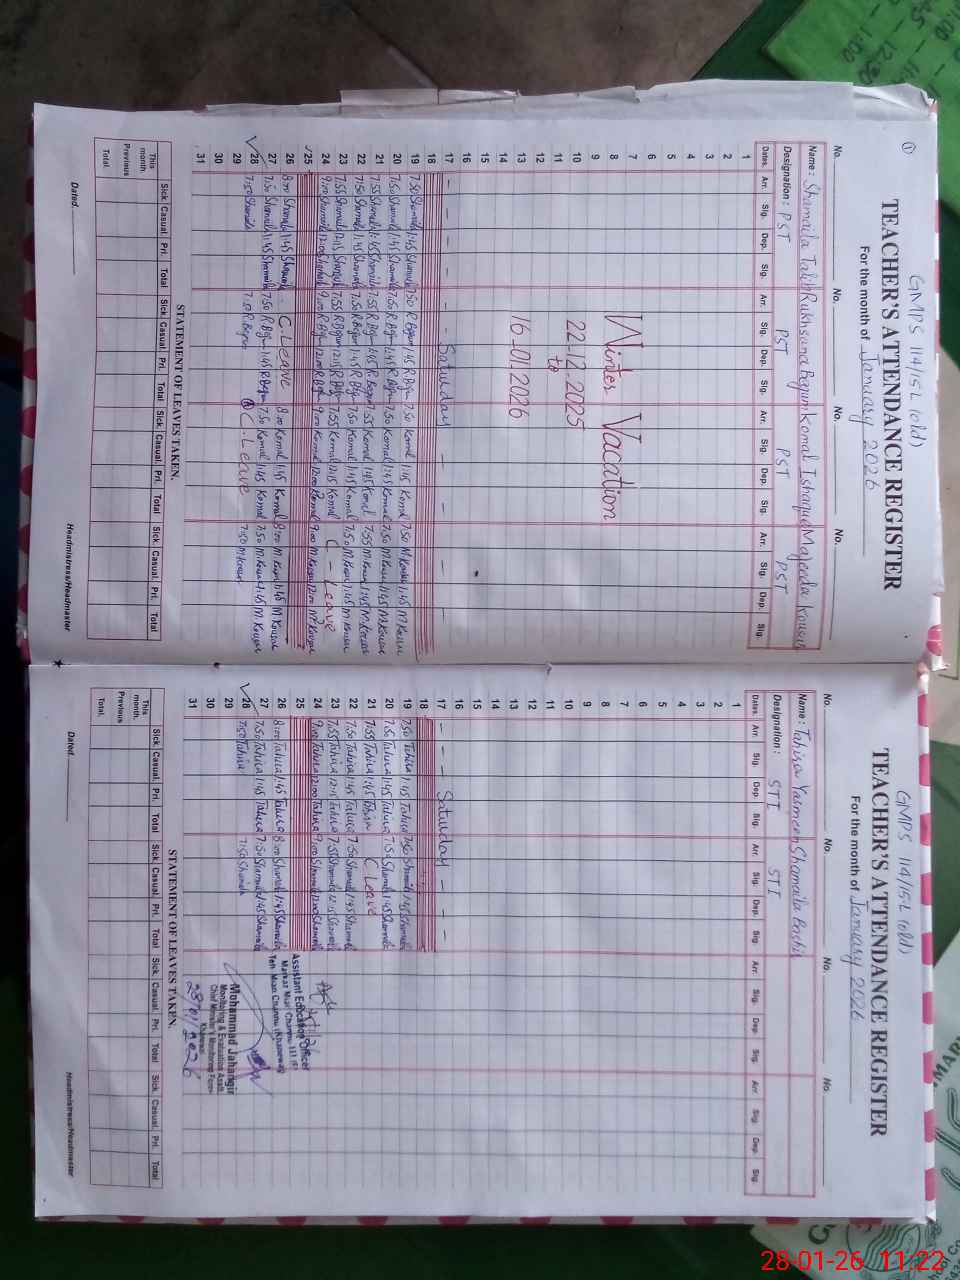 1
GMPS 114/15L (old)
TEACHER'S ATTENDANCE REGISTER
For the month of January 2026
No. No. No. No.
Name: Shamaila Talib Rukhsana Begum Komal Ishaque Majeeda Kousar
Designation: PST PST PST PST
Dates. Arr. Sig. Dep. Sig. Arr. Sig. Dep. Sig. Arr. Sig. Dep. Sig. Arr. Sig. Dep. Sig.
1
2
3
4
5
6
7
8
9
10
11
12
13
14
15
16
Winter Vacation
22.12.2025
to
16-01-2026
17 Saturday
18
19 7:50 Shamaila 1:45 Shamaila 7:50 R.Begum 1:45 R.Begum 7:50 Komal 1:45 Komal 7:50 M.Kousar 1:45 M.Kousar
20 7:50 Shamaila 1:45 Shamaila 7:50 R.Begum 1:45 R.Begum 7:50 Komal 1:45 Komal 7:50 M.Kousar 1:45 M.Kousar
21 7:55 Shamaila 1:45 Shamaila 7:55 R.Begum 1:45 R.Begum 7:55 Komal 1:45 Komal 7:55 M.Kousar 1:45 M.Kousar
22 7:50 Shamaila 1:45 Shamaila 7:50 R.Begum 1:45 R.Begum 7:50 Komal 1:45 Komal 7:50 M.Kousar 1:45 M.Kousar
23 7:55 Shamaila 12:15 Shamaila 7:55 R.Begum 12:15 R.Begum 7:55 Komal 12:15 Komal C-Leave
24 9:00 Shamaila 12:00 Shamaila 9:00 R.Begum 12:00 R.Begum 9:00 Komal 12:00 Komal 9:00 M.Kousar 12:00 M.Kousar
25
26 8:00 Shamaila 1:45 Shamaila C.Leave 8:00 Komal 1:45 Komal 8:00 M.Kousar 1:45 M.Kousar
27 7:50 Shamaila 1:45 Shamaila 7:50 R.Begum 1:45 R.Begum 7:50 Komal 1:45 Komal 7:50 M.Kousar 1:45 M.Kousar
28 7:50 Shamaila 7:50 R.Begum C.Leave 7:50 M.Kousar
29
30
31
STATEMENT OF LEAVES TAKEN.
Sick. Casual. Pri. Total Sick. Casual. Pri. Total Sick. Casual. Pri. Total Sick. Casual. Pri. Total
This month.
Previous
Total.
Dated. Headmistress/Headmaster
GMPS 114/15L (old)
TEACHER'S ATTENDANCE REGISTER
For the month of January 2026
No. No. No. No.
Name: Tahira Yasmeen Shamaila Bashir
Designation: STI STI
Dates. Arr. Sig. Dep. Sig. Arr. Sig. Dep. Sig. Arr. Sig. Dep. Sig. Arr. Sig. Dep. Sig.
1
2
3
4
5
6
7
8
9
10
11
12
13
14
15
16
17 Saturday
18
19 7:50 Tahira 1:45 Tahira 7:50 Shamaila 1:45 Shamaila
20 7:50 Tahira 1:45 Tahira 7:50 Shamaila 1:45 Shamaila
21 7:55 Tahira 1:45 Tahira C Leave
22 7:50 Tahira 1:45 Tahira 7:50 Shamaila 1:45 Shamaila
23 7:55 Tahira 12:15 Tahira 7:55 Shamaila 12:15 Shamaila
24 9:00 Tahira 12:00 Tahira 9:00 Shamaila 12:00 Shamaila
25
26 8:00 Tahira 1:45 Tahira 8:00 Shamaila 1:45 Shamaila
27 7:50 Tahira 1:45 Tahira 7:50 Shamaila 1:45 Shamaila
28 7:50 Tahira 7:50 Shamaila
29
30
31
Assistant Education Officer
Markaz Mian Channu
Teh: Mian Channu (Khanewal)
Mohammad Jahangir
Monitoring & Evaluation Asstt
Chief Minister's Monitoring Force
Khanewal
28/01/2026
STATEMENT OF LEAVES TAKEN.
Sick. Casual. Pri. Total Sick. Casual. Pri. Total Sick. Casual. Pri. Total Sick. Casual. Pri. Total
This month.
Previous
Total.
Dated. Headmistress/Headmaster
28-01-26 11:22